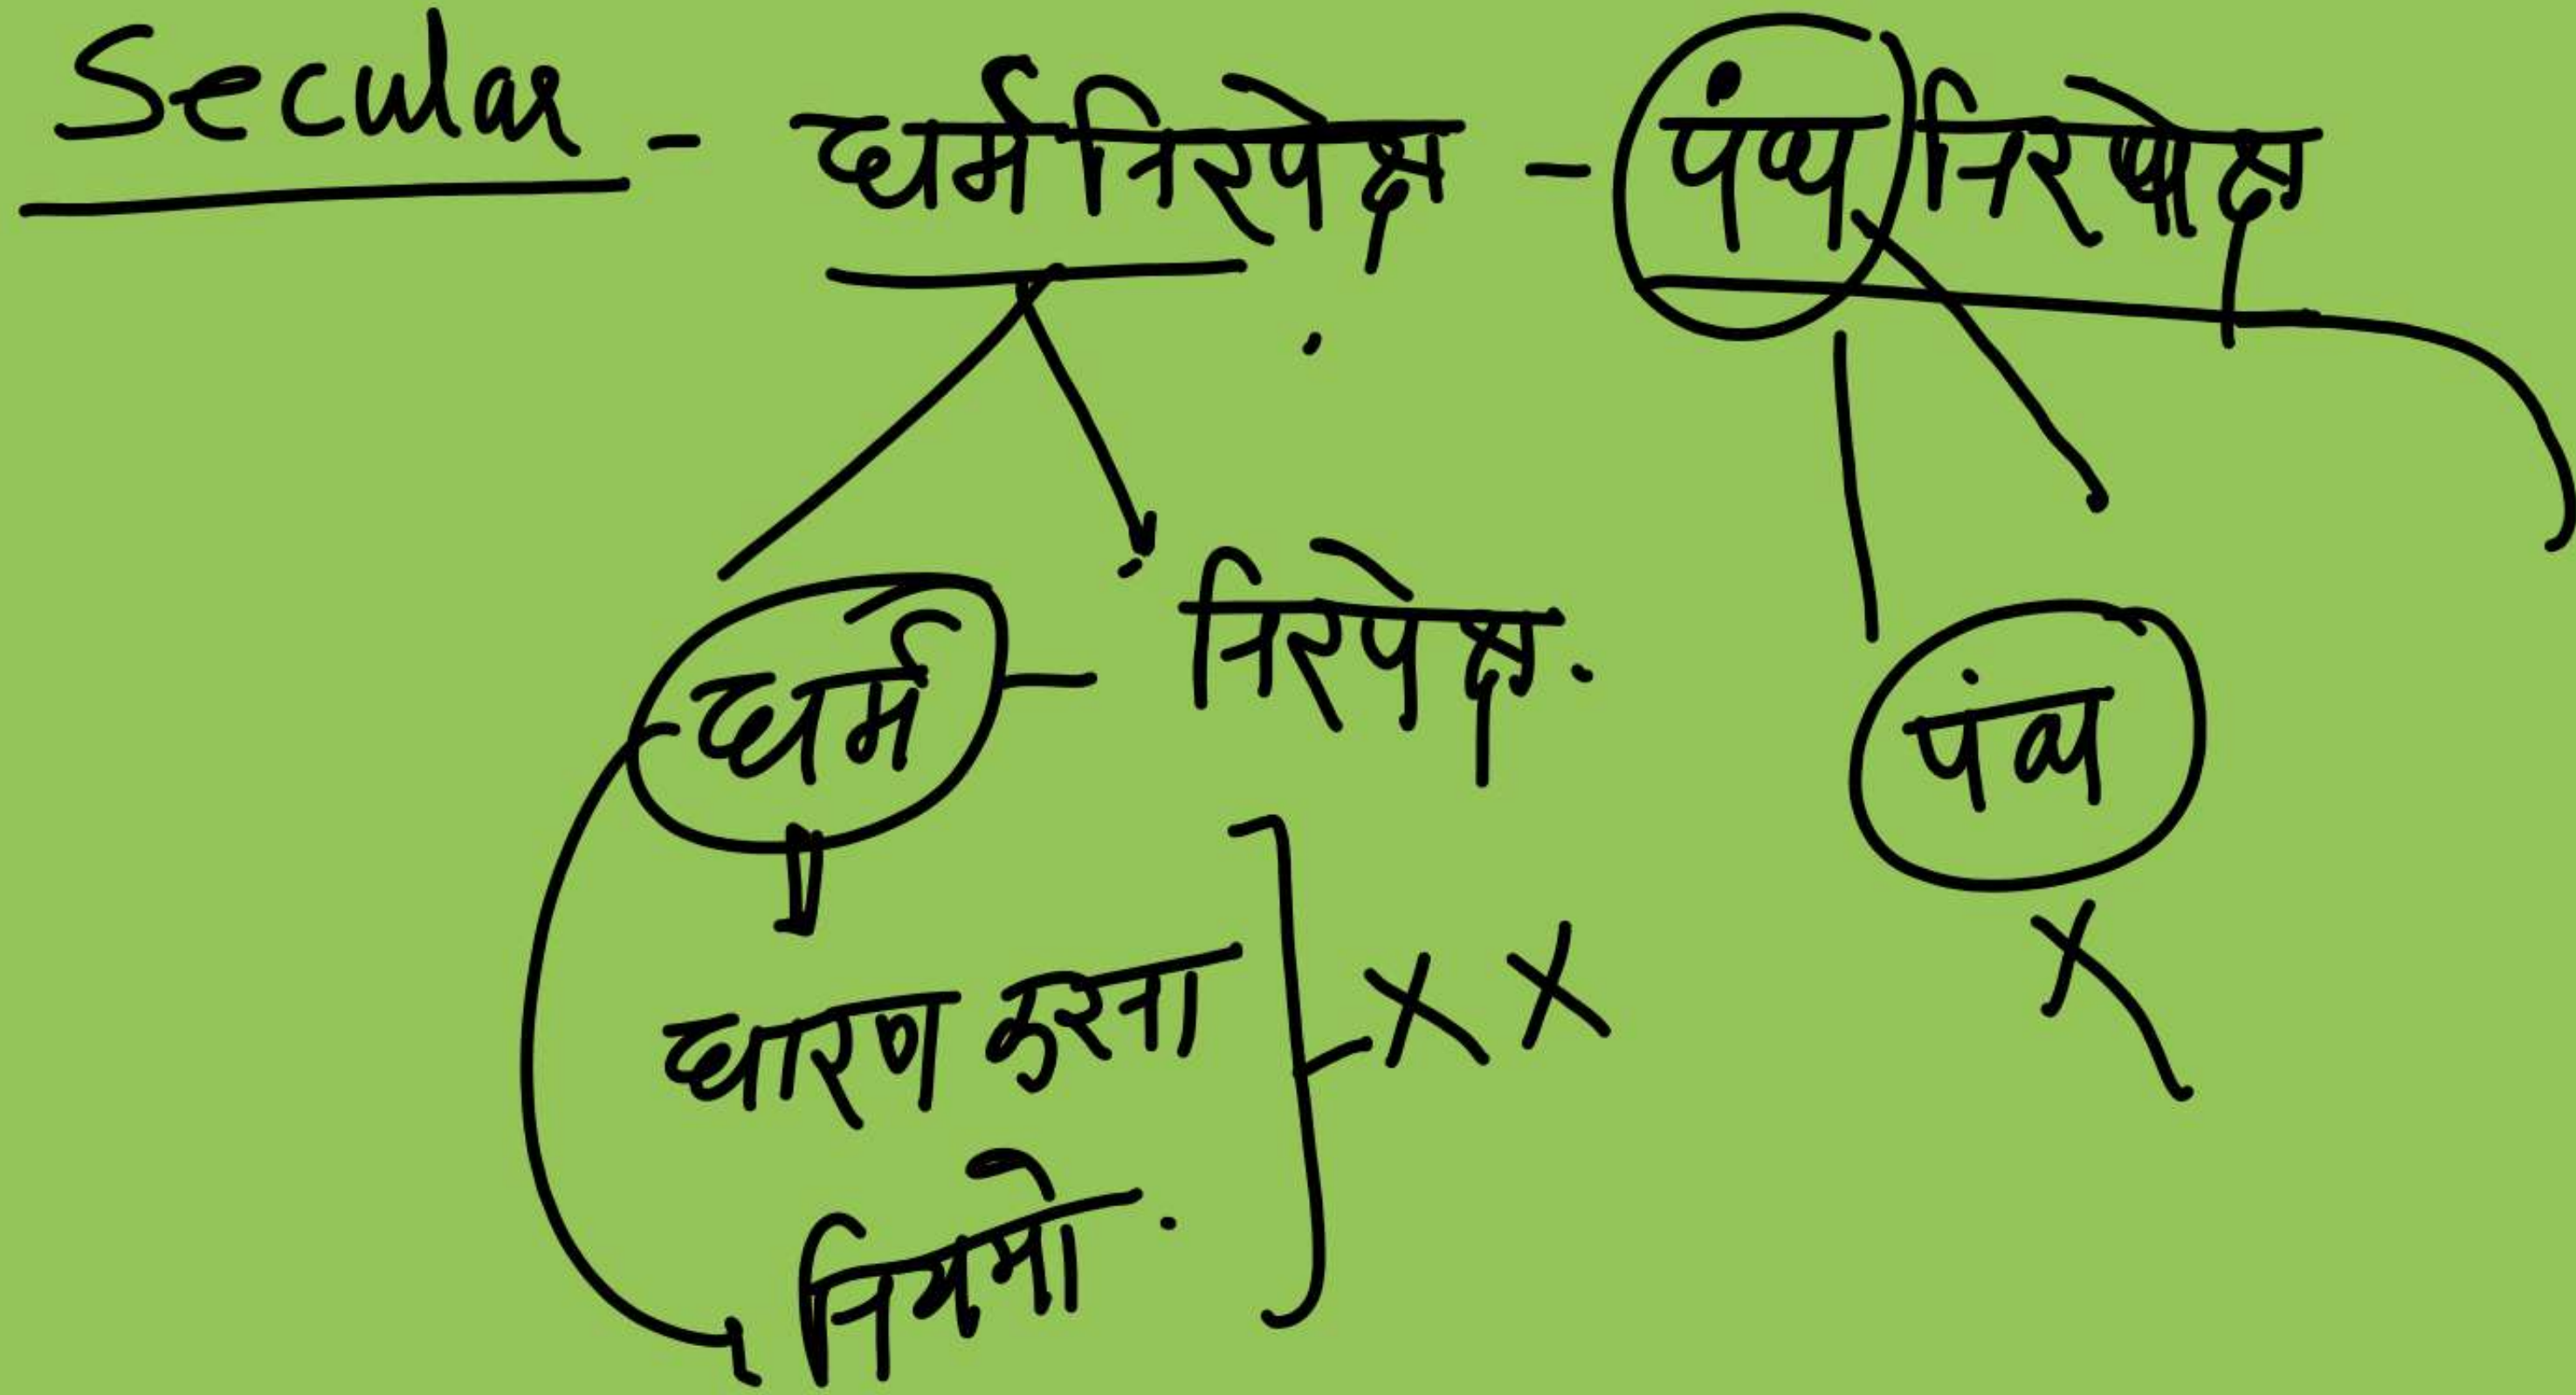 Secular - धर्म निरपेक्ष - पंथ निरपेक्ष
धर्म - निरपेक्ष.
पंथ
धारण करना
X X
X
नियमो.